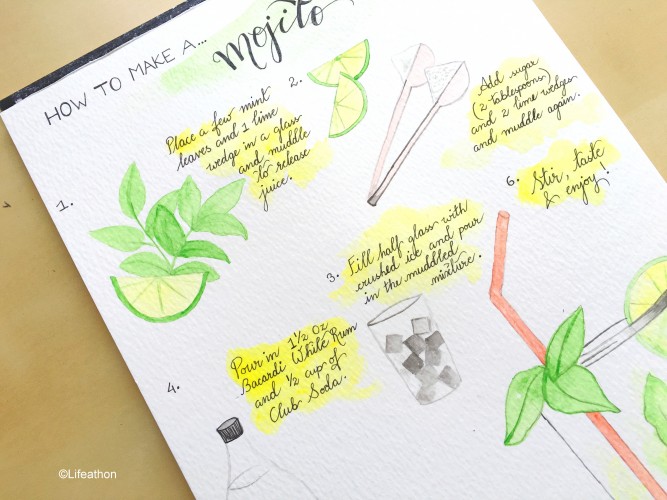 HOW TO MAKE A...
Mojito
1.
Place a few mint
leaves and 1 lime
wedge in a glass
and muddle
to release
juice.
2.
Add sugar
(2 tablespoons)
and 2 lime wedges
and muddle again.
3. Fill half glass with
crushed ice and pour
in the muddled
mixture.
4.
Pour in 1 1/2 Oz
Bacardi White Rum
and 1/2 cup of
Club Soda.
6. Stir, taste
& enjoy!
©Lifeathon